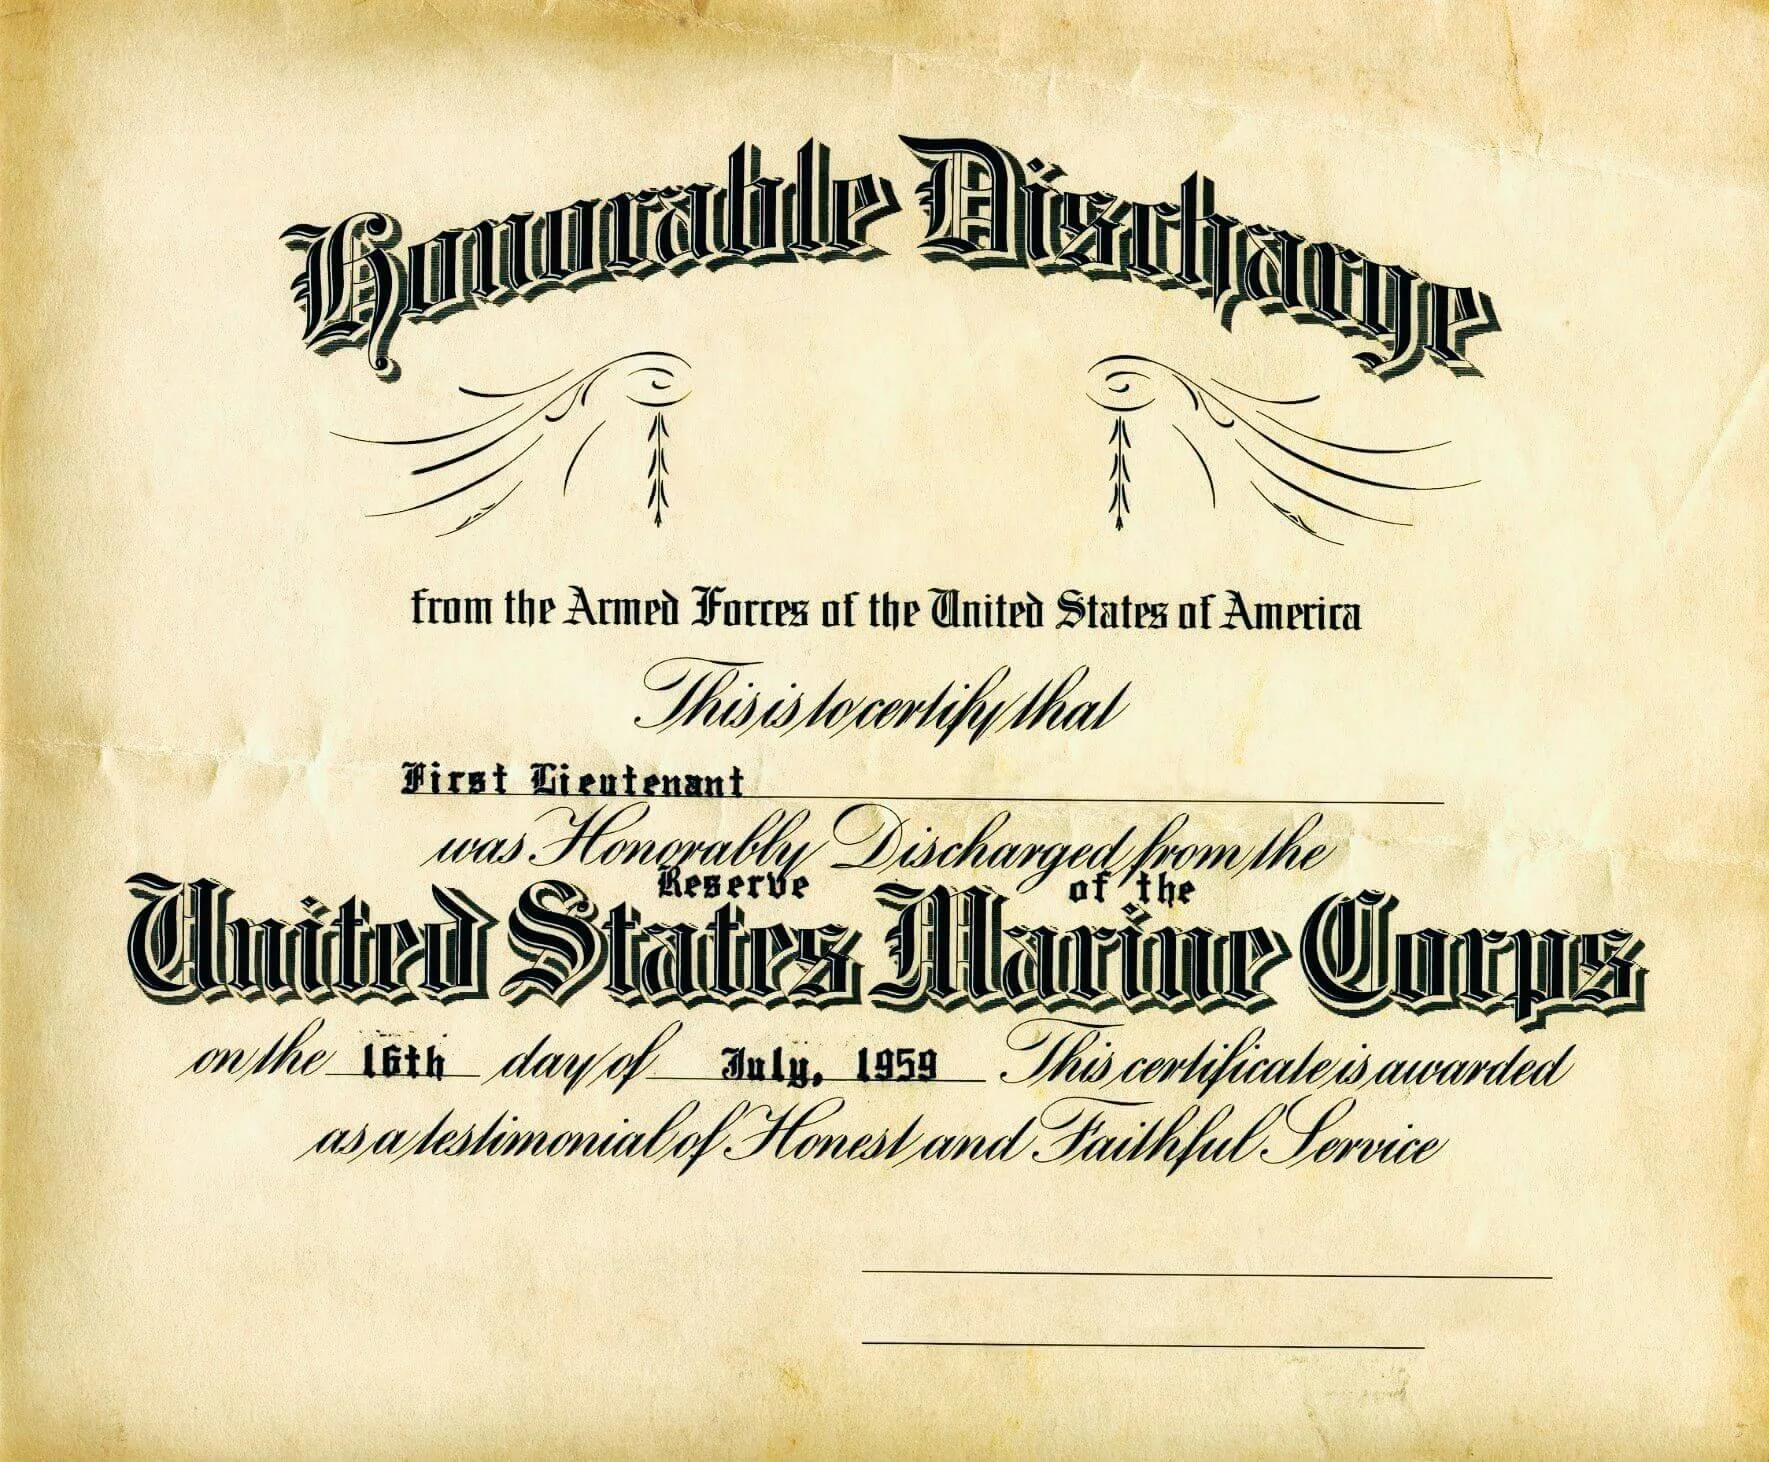 Honorable Discharge
from the Armed Forces of the United States of America
This is to certify that
First Lieutenant
was Honorably Discharged from the
Reserve of the
United States Marine Corps
on the 16th day of July, 1959 This certificate is awarded
as a testimonial of Honest and Faithful Service